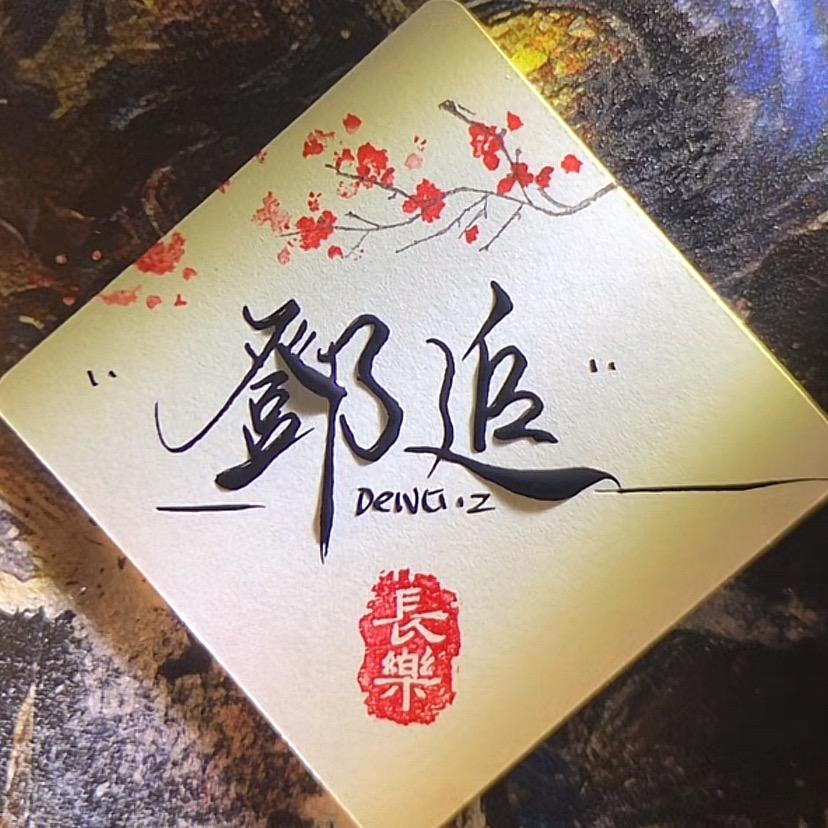 "鄧追"
DENG.Z
長樂